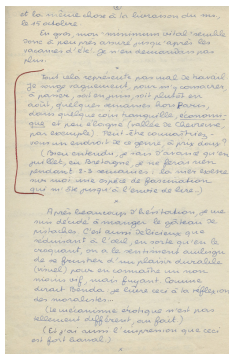 et la même chose à la livraison du ms,
le 15 octobre.
En gros, mon "minimum vital" semble
donc à peu près assuré jusqu'après les
vacances d'été. Je n'en demandais pas
plus.
Tout cela représente pas mal de travail
Je songe vaguement, pour m'y consacrer
à passer, soit en juin, soit plutôt en
août, quelques semaines hors Paris,
dans quelque coin tranquille, économi-
que et peu éloigné (vallée de Chevreuse,
par exemple). Peut-être connaîtriez-
vous un endroit de ce genre, à prix doux?
(Bien entendu, je sais d'avance qu'en
juillet, en Bretagne je ne ferai rien
pendant 2-3 semaines: la mer exerce
sur moi une espèce de fascination
qui m'ôte jusqu'à l'envie de lire.)
Après beaucoup d'hésitation, je me
suis décidé à manger le gâteau de
pistaches. C'est aussi délicieux que
séduisant à l'œil, en sorte qu'en le
croquant, on a le sentiment
de se frustrer d'un plaisir durable
(visuel) pour en connaître un non
moins vif, mais fuyant. Comme
dirait Benda, je livre ceci à la réflexion
des moralistes...
(Le mécanisme érotique n'est pas
tellement différent, au fait)
(Et j'ai aussi l'impression que ceci
est fort banal.)